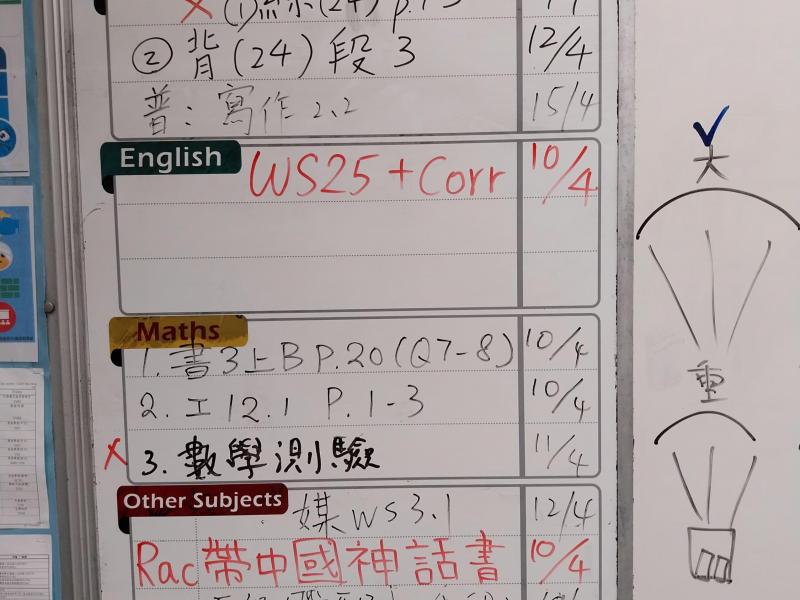 ② 背(24)段3 12/4
普：寫作2.2 15/4
English
WS25+Corr 10/4
Maths
1. 書3上B P.20(Q7-8) 10/4
2. 工12.1 P.1-3 10/4
3. 數學測驗 11/4
Other Subjects
媒WS3.1 12/4
Rac帶中國神話書 10/4
大
重